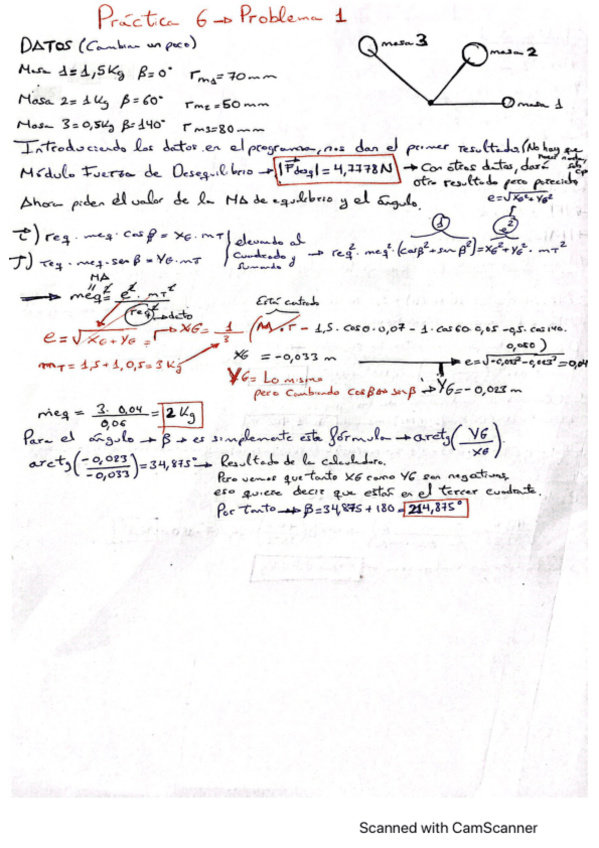 Práctica 6 → Problema 1
DATOS (Cambian un poco)
masa 3
masa 2
masa 1
Masa 1 = 1,5 Kg β = 0° r m1 = 70 mm
Masa 2 = 1 Kg β = 60° r m2 = 50 mm
Masa 3 = 0,5 Kg β = 140° r m3 = 80 mm
Introduciendo los datos en el programa, nos dan el primer resultado (No hay que
hacer nada, solo
Módulo Fuerza de Desequilibrio → |F deseq| = 4,7778 N → Con otros datos, dará
otro resultado pero parecido
Ahora piden el valor de la MA de equilibrio y el ángulo.
e = √XG² + YG²
i) req · meq · cos β = XG · mT
J) req · meq · sen β = YG · mT
elevando al
cuadrado y
sumando
→ req² · meq² · (cos β² + sin β²) = XG² + YG² · mT²
1
e²
MA
→ meq² = e² · mT²
req²
→ dato
Está centrado
e = √XG + YG =
XG = 1/3 · (M · r − 1,5 · cos 0 · 0,07 − 1 · cos 60 · 0,05 − 0,5 · cos 140 ·
0,080)
mT = 1,5 + 1, 0,5 = 3 Kg
XG = −0,033 m
→ e = √−0,033² − 0,023² = 0,04
YG = Lo mismo
pero cambiando cos β por sin β → YG = −0,023 m
meq = 3 · 0,04 / 0,06 = 2 Kg
Para el ángulo → β → es simplemente esta fórmula → arctg (YG / XG)
arctg (−0,023 / −0,033) = 34,875° → Resultado de la calculadora.
Pero vemos que tanto XG como YG son negativas,
eso quiere decir que estás en el tercer cuadrante.
Por tanto → β = 34,875 + 180 = 214,875°
Scanned with CamScanner